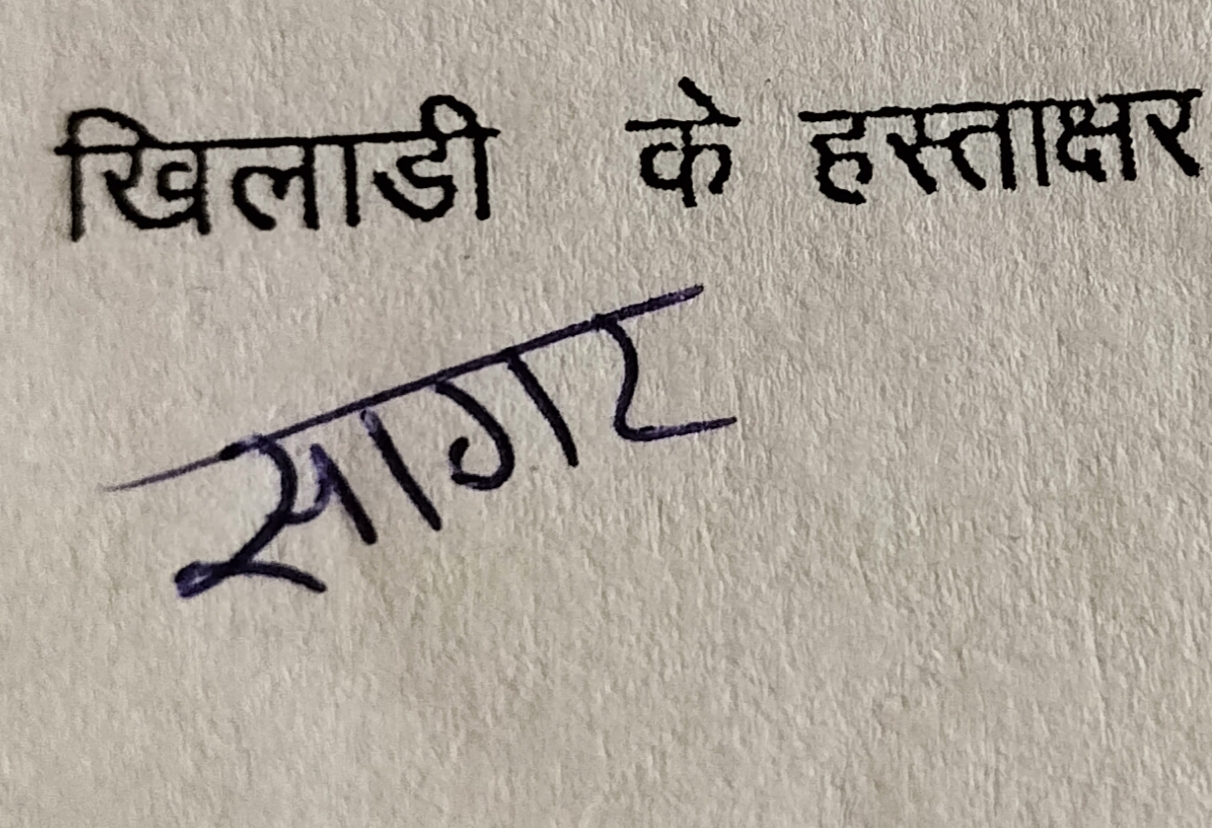 खिलाडी के हस्ताक्षर
सागर